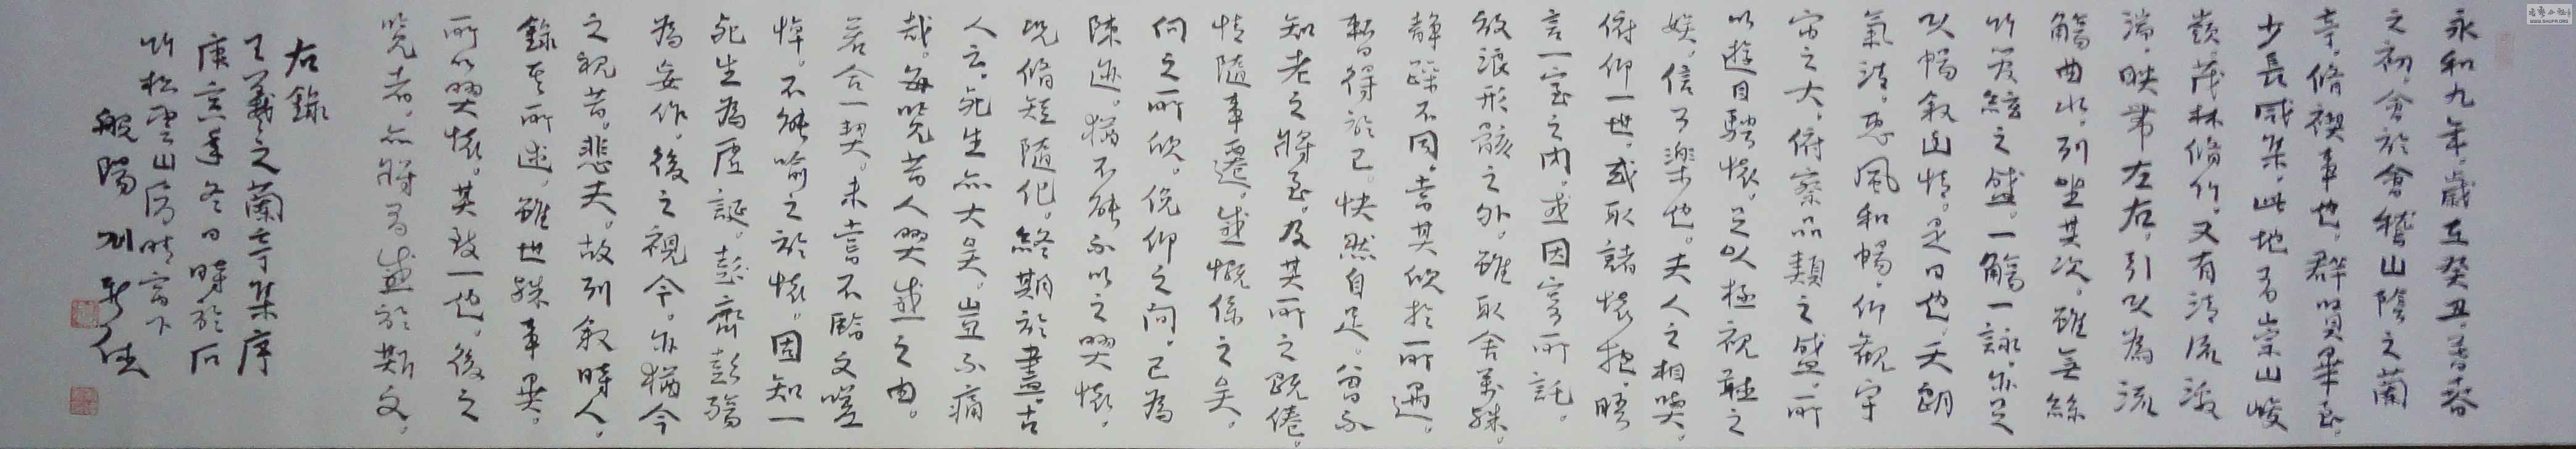 永和九年。歲在癸丑。暮春
之初。會於會稽山陰之蘭
亭。脩禊事也。群賢畢至。
少長咸集。此地有崇山峻
嶺。茂林脩竹。又有清流激
湍。映帶左右。引以為流
觴曲水。列坐其次。雖無絲
竹管絃之盛。一觴一詠。亦足
以暢叙幽情。是日也。天朗
氣清。惠風和暢。仰觀宇
宙之大。俯察品類之盛。所
以遊目騁懷。足以極視聽之
娛。信可樂也。夫人之相與。
俯仰一世。或取諸懷抱。晤
言一室之內。或因寄所託。
放浪形骸之外。雖取舍萬殊。
靜躁不同。當其欣於所遇。
暫得於己。快然自足。曾不
知老之將至。及其所之既倦。
情隨事遷。感慨係之矣。
向之所欣。俛仰之间。已為
陳迹。猶不能不以之興懷。
况脩短隨化。終期於盡。古
人云。死生亦大矣。豈不痛
哉。每覽昔人興感之由。
若合一契。未嘗不臨文嗟
悼。不能喻之於懷。固知一
死生為虛誕。彭齊彭殤
為妄作。後之視今。亦猶今
之視昔。悲夫。故列叙時人。
錄其所述。雖世殊事異。
所以興懷。其致一也。後之
覽者。亦將有感於斯文。
右錄
王羲之蘭亭集序
庚寅年冬日時於石
竹松雲山房晴窗下
般陽刘